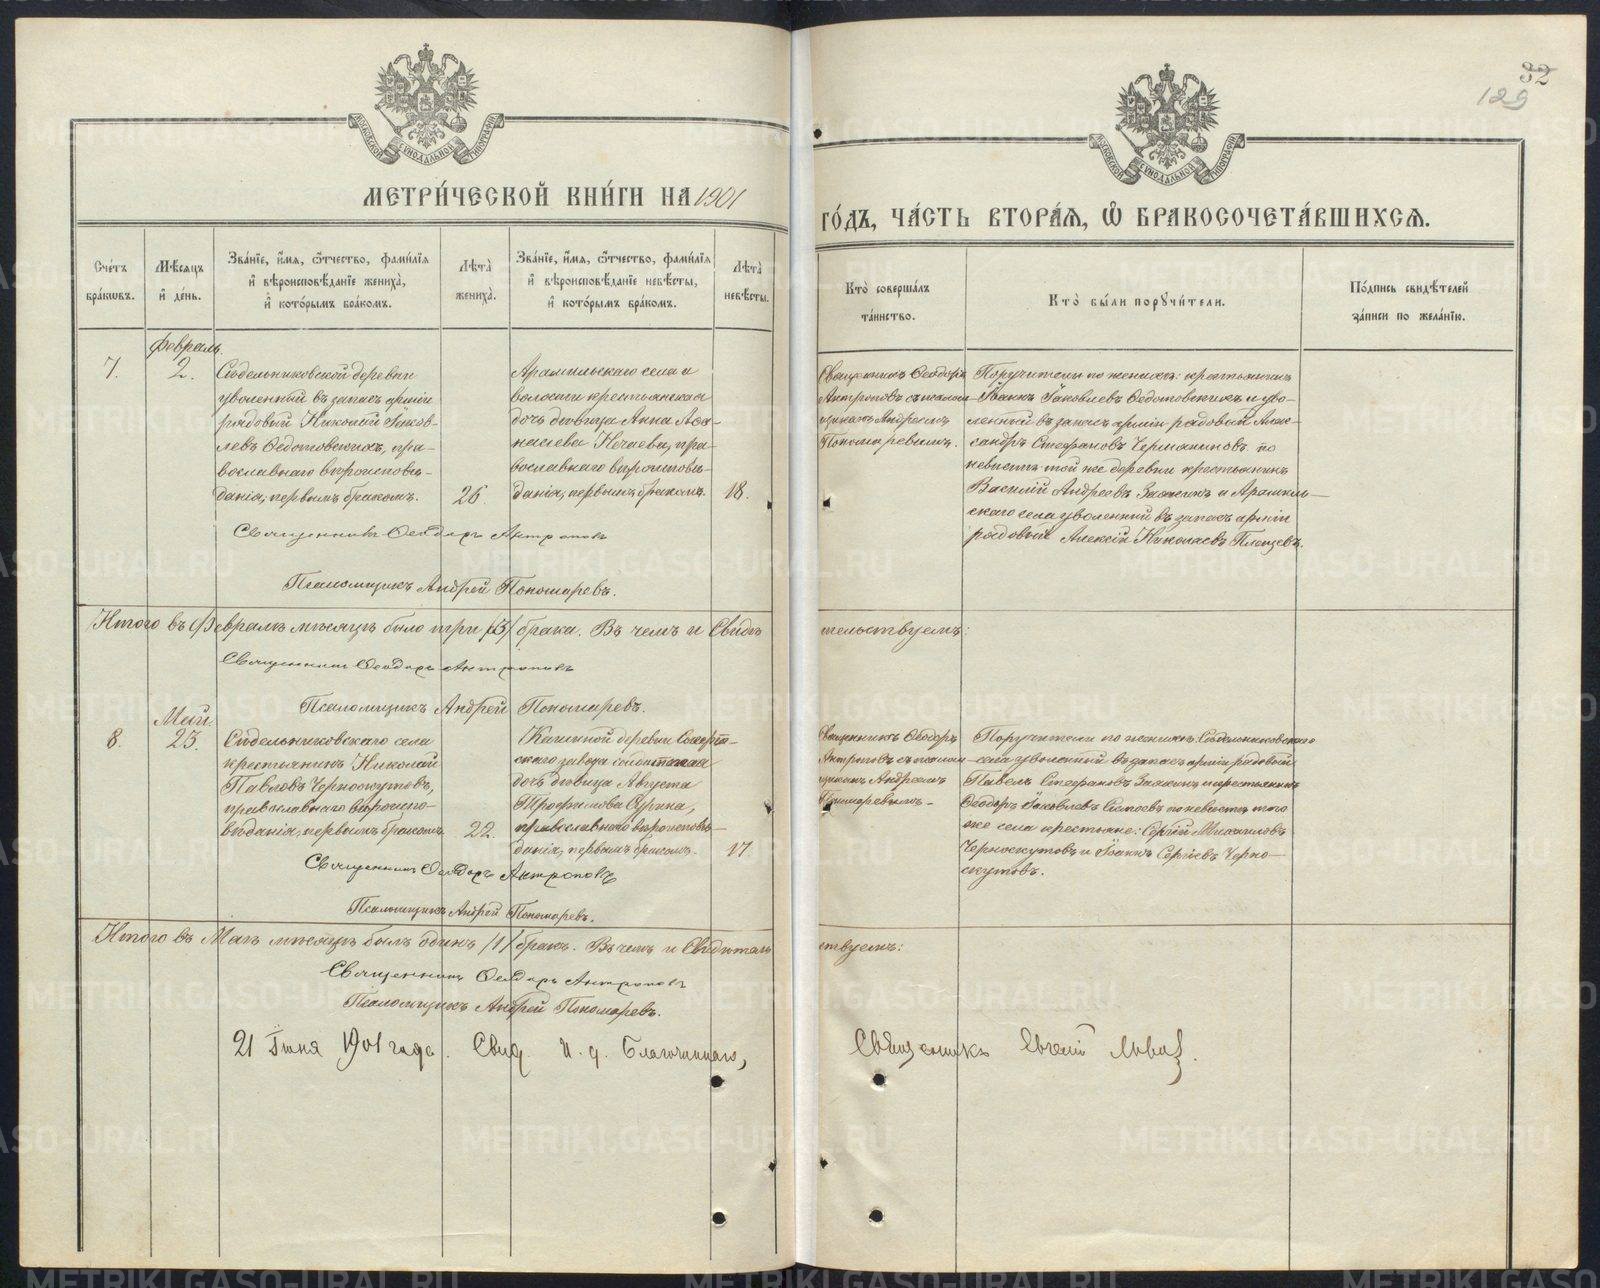 32
129
МОСКОВСКОЙ СУНОДАЛЬНОЙ ТИПОГРАФІИ
МОСКОВСКОЙ СУНОДАЛЬНОЙ ТИПОГРАФІИ
МЕТРИ́ЧЕСКОЙ КНИ́ГИ НА 1901
ГО́ДЪ, ЧА́СТЬ ВТОРА́Я, Ѡ҆ БРАКОСОЧЕТА́ВШИХСЯ.
Сче́тъ
бра́кωвъ.
Мѣ́сяцъ
и҆ де́нь.
Зва́нїе, и҆́мя, ѻ҆́тчество, фами́лїя
и҆ вѣроисповѣ́данїе жениха̀,
и҆ кото́рымъ бра́комъ.
Лѣ́та
жениха̀.
Зва́нїе, и҆́мя, ѻ҆́тчество, фами́лїя
и҆ вѣроисповѣ́данїе невѣ́сты,
и҆ кото́рымъ бра́комъ.
Лѣ́та
невѣ́сты.
Кто̀ соверша́лъ
та́инство.
Кто̀ бы́ли поручи́тели.
По́дпись свидѣ́телей
за́писи по жела́нїю.
Февраль.
7.
2.
Сидельниковской деревни
уволенный въ запасъ арміи
рядовой Николай Іаков-
левъ Ѳедотовскихъ, пра-
вославнаго вѣроисповѣ-
данія, первымъ бракомъ.
26
Арамильскаго села и
волости крестьянская
дочь дѣвица Анна Аѳа-
насіева Нечаева, пра-
вославнаго вѣроисповѣ-
данія, первымъ бракомъ.
18.
Священникъ Ѳеодоръ
Антроповъ съ псалом-
щикомъ Андреемъ
Пономаревымъ.
Поручители по женихѣ: крестьянинъ
Іоаннъ Іаковлевъ Ѳедотовскихъ и уво-
ленный въ запасъ арміи рядовой Алек-
сандръ Стефановъ Чермяниновъ по
невѣстѣ: той же деревни крестьянинъ
Василій Андреевъ и Арамиль-
скаго села уволенный въ запасъ арміи
рядовый Алексій Николаевъ
Священникъ Ѳеодоръ Антроповъ
Псаломщикъ Андрей Пономаревъ.
Итого въ Февралѣ мѣсяцѣ было три /3/ брака. Въ чемъ и свидѣ
тельствуемъ:
Священникъ Ѳеодоръ Антроповъ
Псаломщикъ Андрей Пономаревъ.
Май.
8.
23.
Сидельниковскаго села
крестьянинъ Николай
Павловъ Черноскутовъ,
православнаго вѣроиспо-
вѣданія, первымъ бракомъ.
22.
деревни Сысерт-
скаго завода
дочь дѣвица Августа
Трофимова
православнаго вѣроисповѣ-
данія, первымъ бракомъ.
17
Священникъ Ѳеодоръ
Антроповъ съ псалом-
щикомъ Андреемъ
Пономаревымъ-
Поручители по женихѣ: Сидельниковскаго
села уволенный въ запасъ арміи рядовой
Павелъ Стефановъ и крестьянинъ
Ѳеодоръ Іаковлевъ по невѣстѣ, того
же села крестьяне: Сергій Михаиловъ
Черноскутовъ и Іоаннъ Сергіевъ Черно-
скутовъ.
Священникъ Ѳеодоръ Антроповъ
Псаломщикъ Андрей Пономаревъ.
Итого въ Маѣ мѣсяцѣ былъ одинъ /1/ бракъ. Въ чемъ и свидѣтель
ствуемъ:
Священникъ Ѳеодоръ Антроповъ
Псаломщикъ Андрей Пономаревъ.
21 Іюня 1901 года. Свид. И. д. Благочиннаго,
Священникъ Евгеній
METRIKI.GASO-URAL.RU